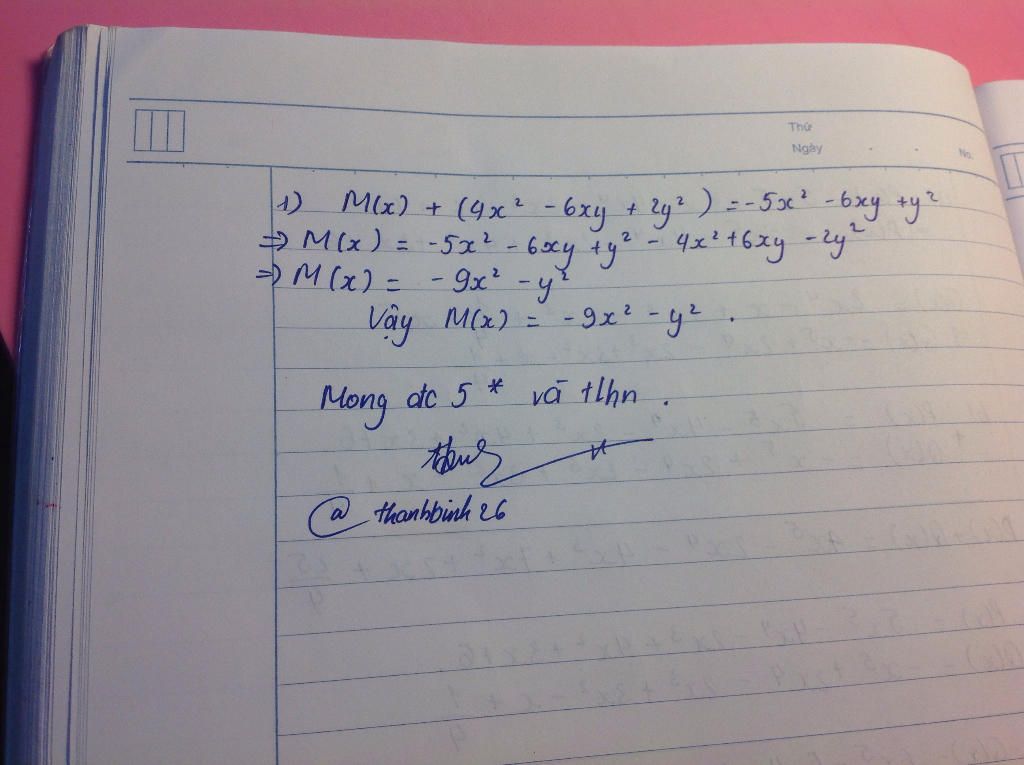 Thứ
Ngày . . No.
1) M(x) + (4x² - 6xy + 2y²) = -5x² - 6xy + y²
=> M(x) = -5x² - 6xy + y² - 4x² + 6xy - 2y²
=> M(x) = -9x² - y²
Vậy M(x) = -9x² - y² .
Mong đc 5 * và tlhn .
@ thanhbinh26